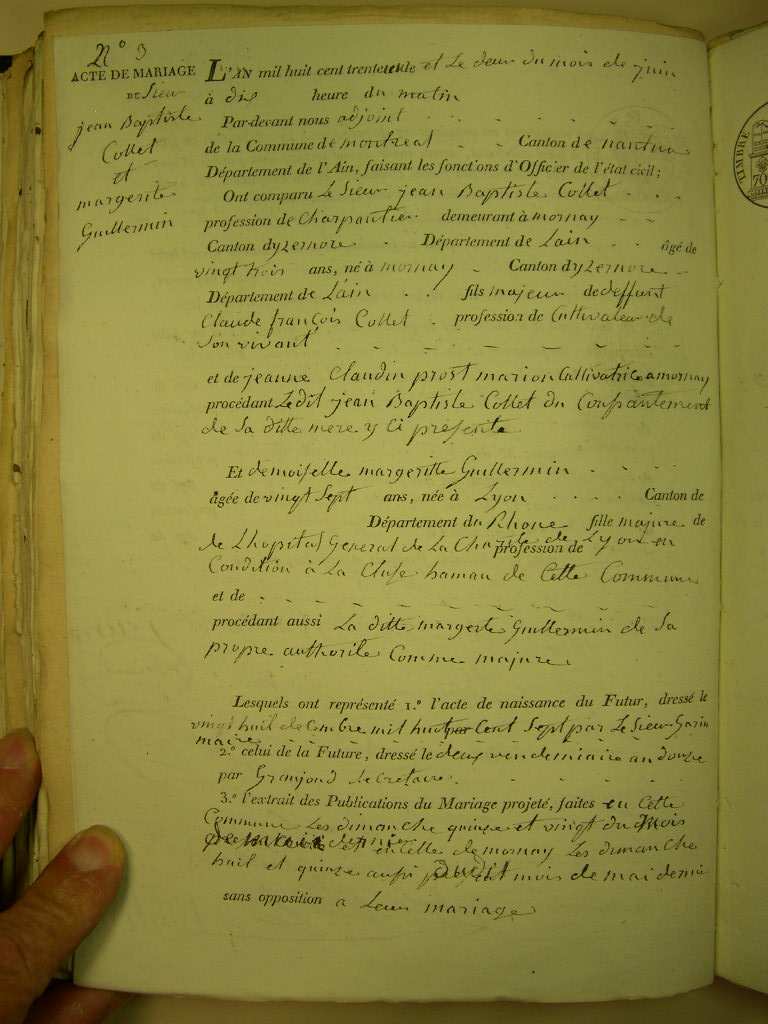 N° 3
ACTE DE MARIAGE
DE Sieur
jean Baptiste
Collet
et
margerite
Guillermin
L'AN mil huit cent trente et Le deux du mois de juin
à dix heure du matin
Par-devant nous adjoint
de la Commune de montreal Canton de nantua
Département de l'Ain, faisant les fonctions d'Officier de l'état civil;
Ont comparu Le Sieur jean Baptiste Collet
profession de Charpantier demeurant à mornay
Canton dyzernore Département de Lain âgé de
vingt trois ans, né à mornay Canton dyzernore
Département de Lain fils majeur de deffunt
Claude françois Collet profession de Cultivateur de
Son vivant
et de jeanne Claudin prost marion Cultivatrice a mornay
procédant Ledit jean Baptiste Collet du Consantement
de Sa ditte mere y Ci presente
Et demoiselle margeritte Guillermin
âgée de vingt Sept ans, née à Lyon Canton de
Département du Rhone fille majure de
de Lhopital General de La Charité de Lyon en
profession de
Condition à La Cluse hamau de Cette Commune
et de
procédant aussi La ditte margerte Guillermin de Sa
propre authorite Comme majure
Lesquels ont représenté 1.° l'acte de naissance du Futur, dressé le
vingt huit decembre mil huit Cent Sept par Le Sieur Garin
maire
2.° celui de la Future, dressé le deux vendemiaire an douze
par Granjond Secretaire
3.° l'extrait des Publications du Mariage projeté, faites en Cette
Commune Les dimanche quinze et vingt du mois
et en Celle de mornay Les dimanche
huit et quinze aussi mois de mai dernie
sans opposition a Leur mariage
TIMBRE
70